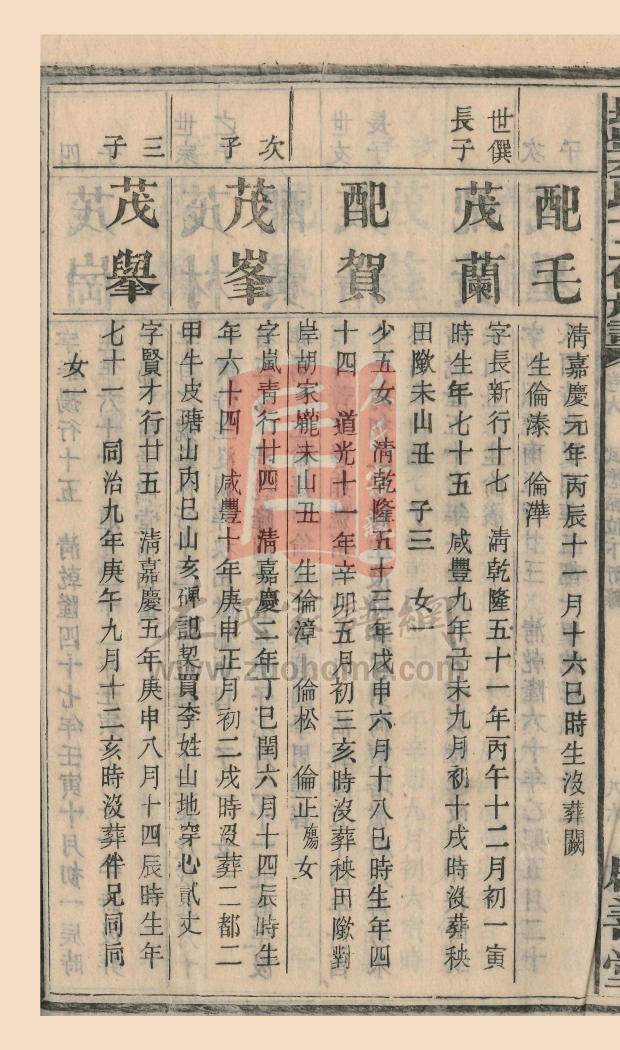 配毛
清嘉慶元年丙辰十一月十六巳時生沒葬闕
生倫溙 倫澕
世僎長子
茂蘭
字長新行十七 清乾隆五十一年丙午十二月初一寅
時生年七十五 咸豐九年己未九月初十戌時沒葬秧
田墩未山丑 子三 女一
配賀
少五女 清乾隆五十三年戊申六月十八巳時生年四
十四 道光十一年辛卯五月初三亥時沒葬秧田墩對
岸胡家壠未山丑 生倫漳 倫松 倫正殤女
次子
茂峯
字嵐青行廿四 清嘉慶二年丁巳閏六月十四辰時生
年六十四 咸豐十年庚申正月初二戌時沒葬二都二
甲牛皮瑭山內巳山亥碑記契買李姓山地穿心貳丈
三子
茂舉
字賢才行廿五 清嘉慶五年庚申八月十四辰時生年
七十一 同治九年庚午九月十二亥時沒葬伴兄同向
女一
www.zuohome.com